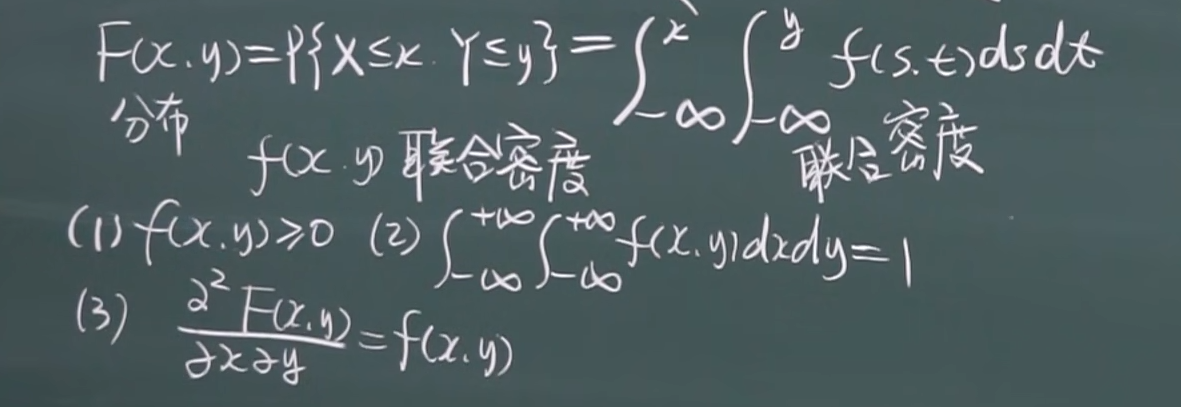 F(x.y)=P{X≤x. Y≤y}=∫_{-∞}^{x}∫_{-∞}^{y} f(s.t)dsdt
分布 联合密度
f(x.y) 联合密度
(1) f(x.y)≥0 (2) ∫_{-∞}^{+∞}∫_{-∞}^{+∞} f(x.y)dxdy=1
(3) ∂²F(x.y)/∂x∂y=f(x.y)